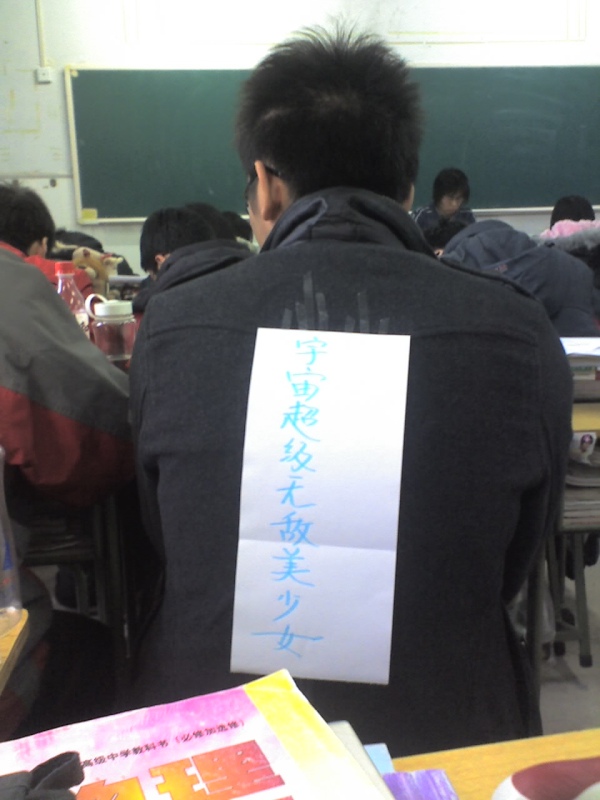 宇宙超级无敌美少女
高级中学教科书（必修加选修）
物理